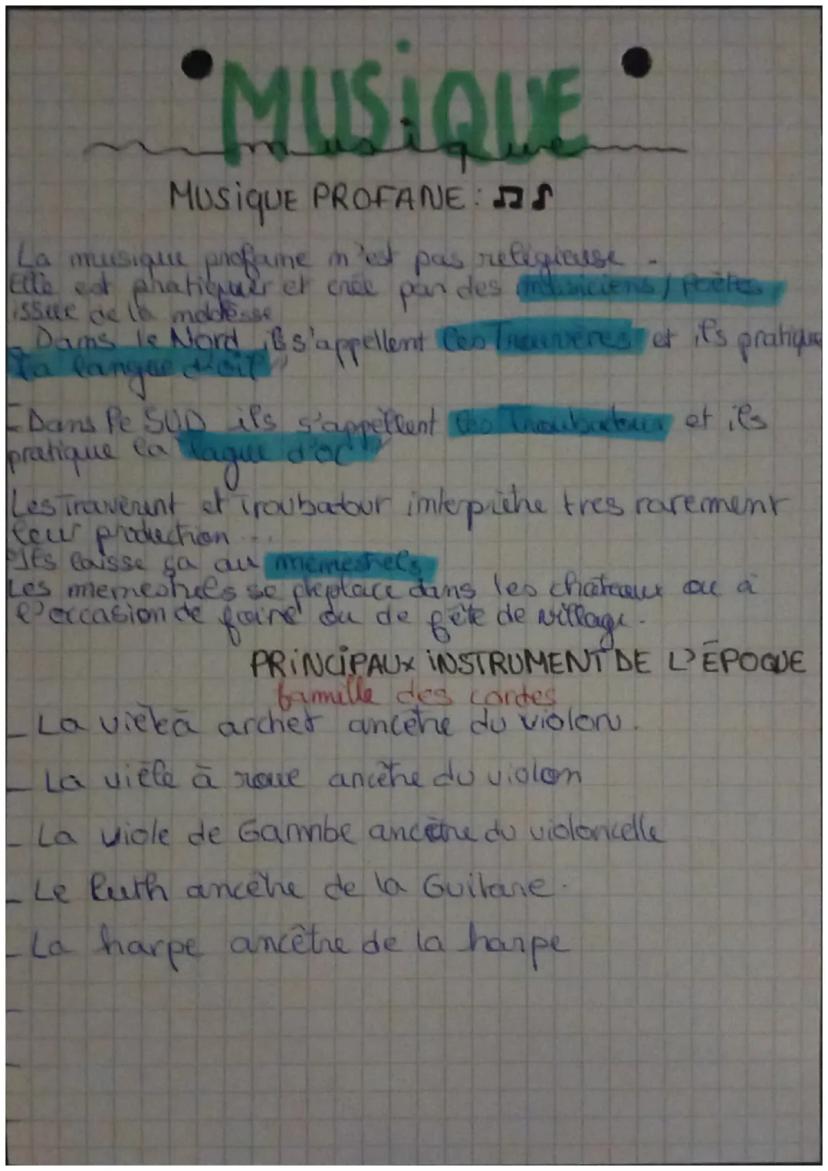 MUSIQUE
musique
MUSIQUE PROFANE : ♫♪
La musique profane n'est pas religieuse.
Elle est pratiquer et crée par des musiciens / Poètes
issue de la noblesse
- Dans le Nord, ils s'appellent les Trouvères et ils pratique
la langue d'oïl
- Dans le SUD ils s'appellent les Troubadour et ils
pratique la lague d'oc
Les Trouverent et Troubatour interprète tres rarement
leur production...
Ils laisse ça au menestrels
Les menestrels se deplace dans les chateaux ou à
l'occasion de foire ou de fête de village.
PRINCIPAUX INSTRUMENT DE L'ÉPOQUE
famille des cordes
- La vièle à archet ancêtre du violon.
- La vièle à roue ancêtre du violon
- La viole de Gambe ancêtre du violoncelle
- Le luth ancêtre de la Guitare.
- La harpe ancêtre de la harpe